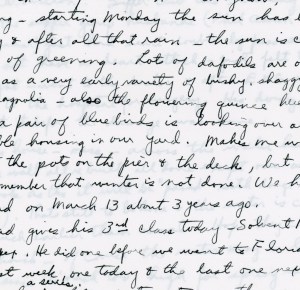 ng - starting Monday the sun has
g & after all that rain - the sun is c
of greening. Lot of dafodils are o
as a very early variety of bushy, shaggy
agnolia - also the flowering quince
a pair of bluebirds is looking over a
ble housing in our yard. Makes me w
the pots on the pier & the deck, but
member that winter is not done. We h
d on March 13 about 3 years ago.
ad gives his 3rd class today - Solvent
He did one before we went to Florid
st week, one today & the last one nex
a series.